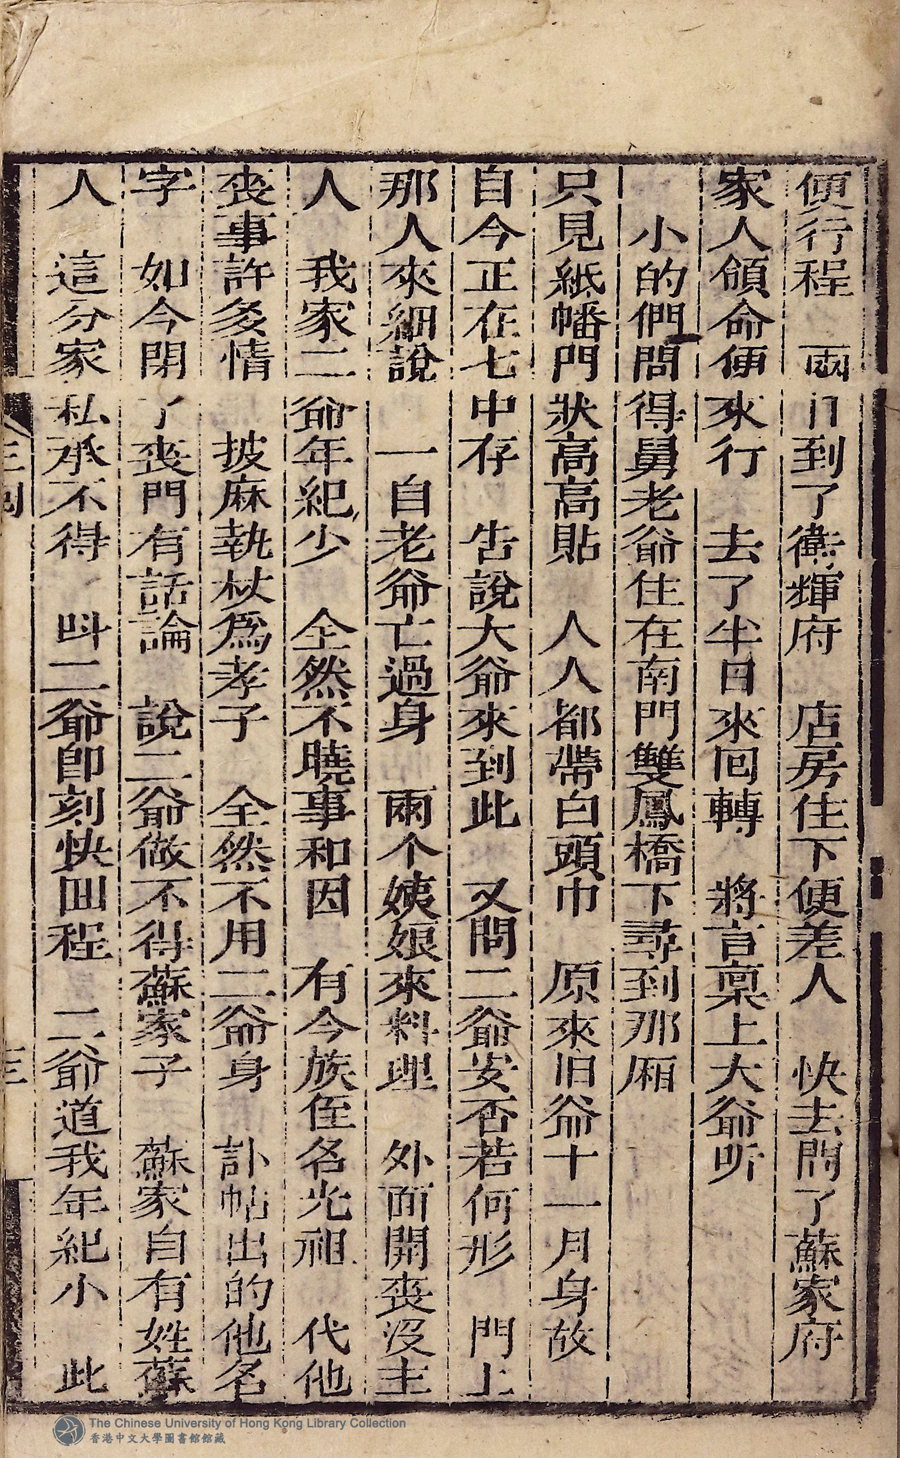 便行程　両日到了衛輝府　店房住下便差人　快去問了蘇家府
家人領命便來行　去了半日來回轉　將言稟上大爺听
小的們問得舅老爺住在南門雙鳳橋下尋到那厢
只見紙幡門狀高高貼　人人都帶白頭巾　原來旧爺十一月身故
自今正在七中存　告說大爺來到此　又問二爺安否若何形　門上
那人來細說　一自老爺亡過身　兩个姨娘來料理　外面開喪沒主
人　我家二爺年紀少　全然不曉事和因　有今族侄名光祖　代他
喪事許多情　披麻執杖為孝子　全然不用二爺身　訃帖出的他名
字　如今閉了喪門有話論　說二爺做不得蘇家子　蘇家自有姓蘇
人　這分家私承不得　叫二爺即刻快回程　二爺道我年紀小　此
三刻
三
The Chinese University of Hong Kong Library Collection
香港中文大學圖書館館藏